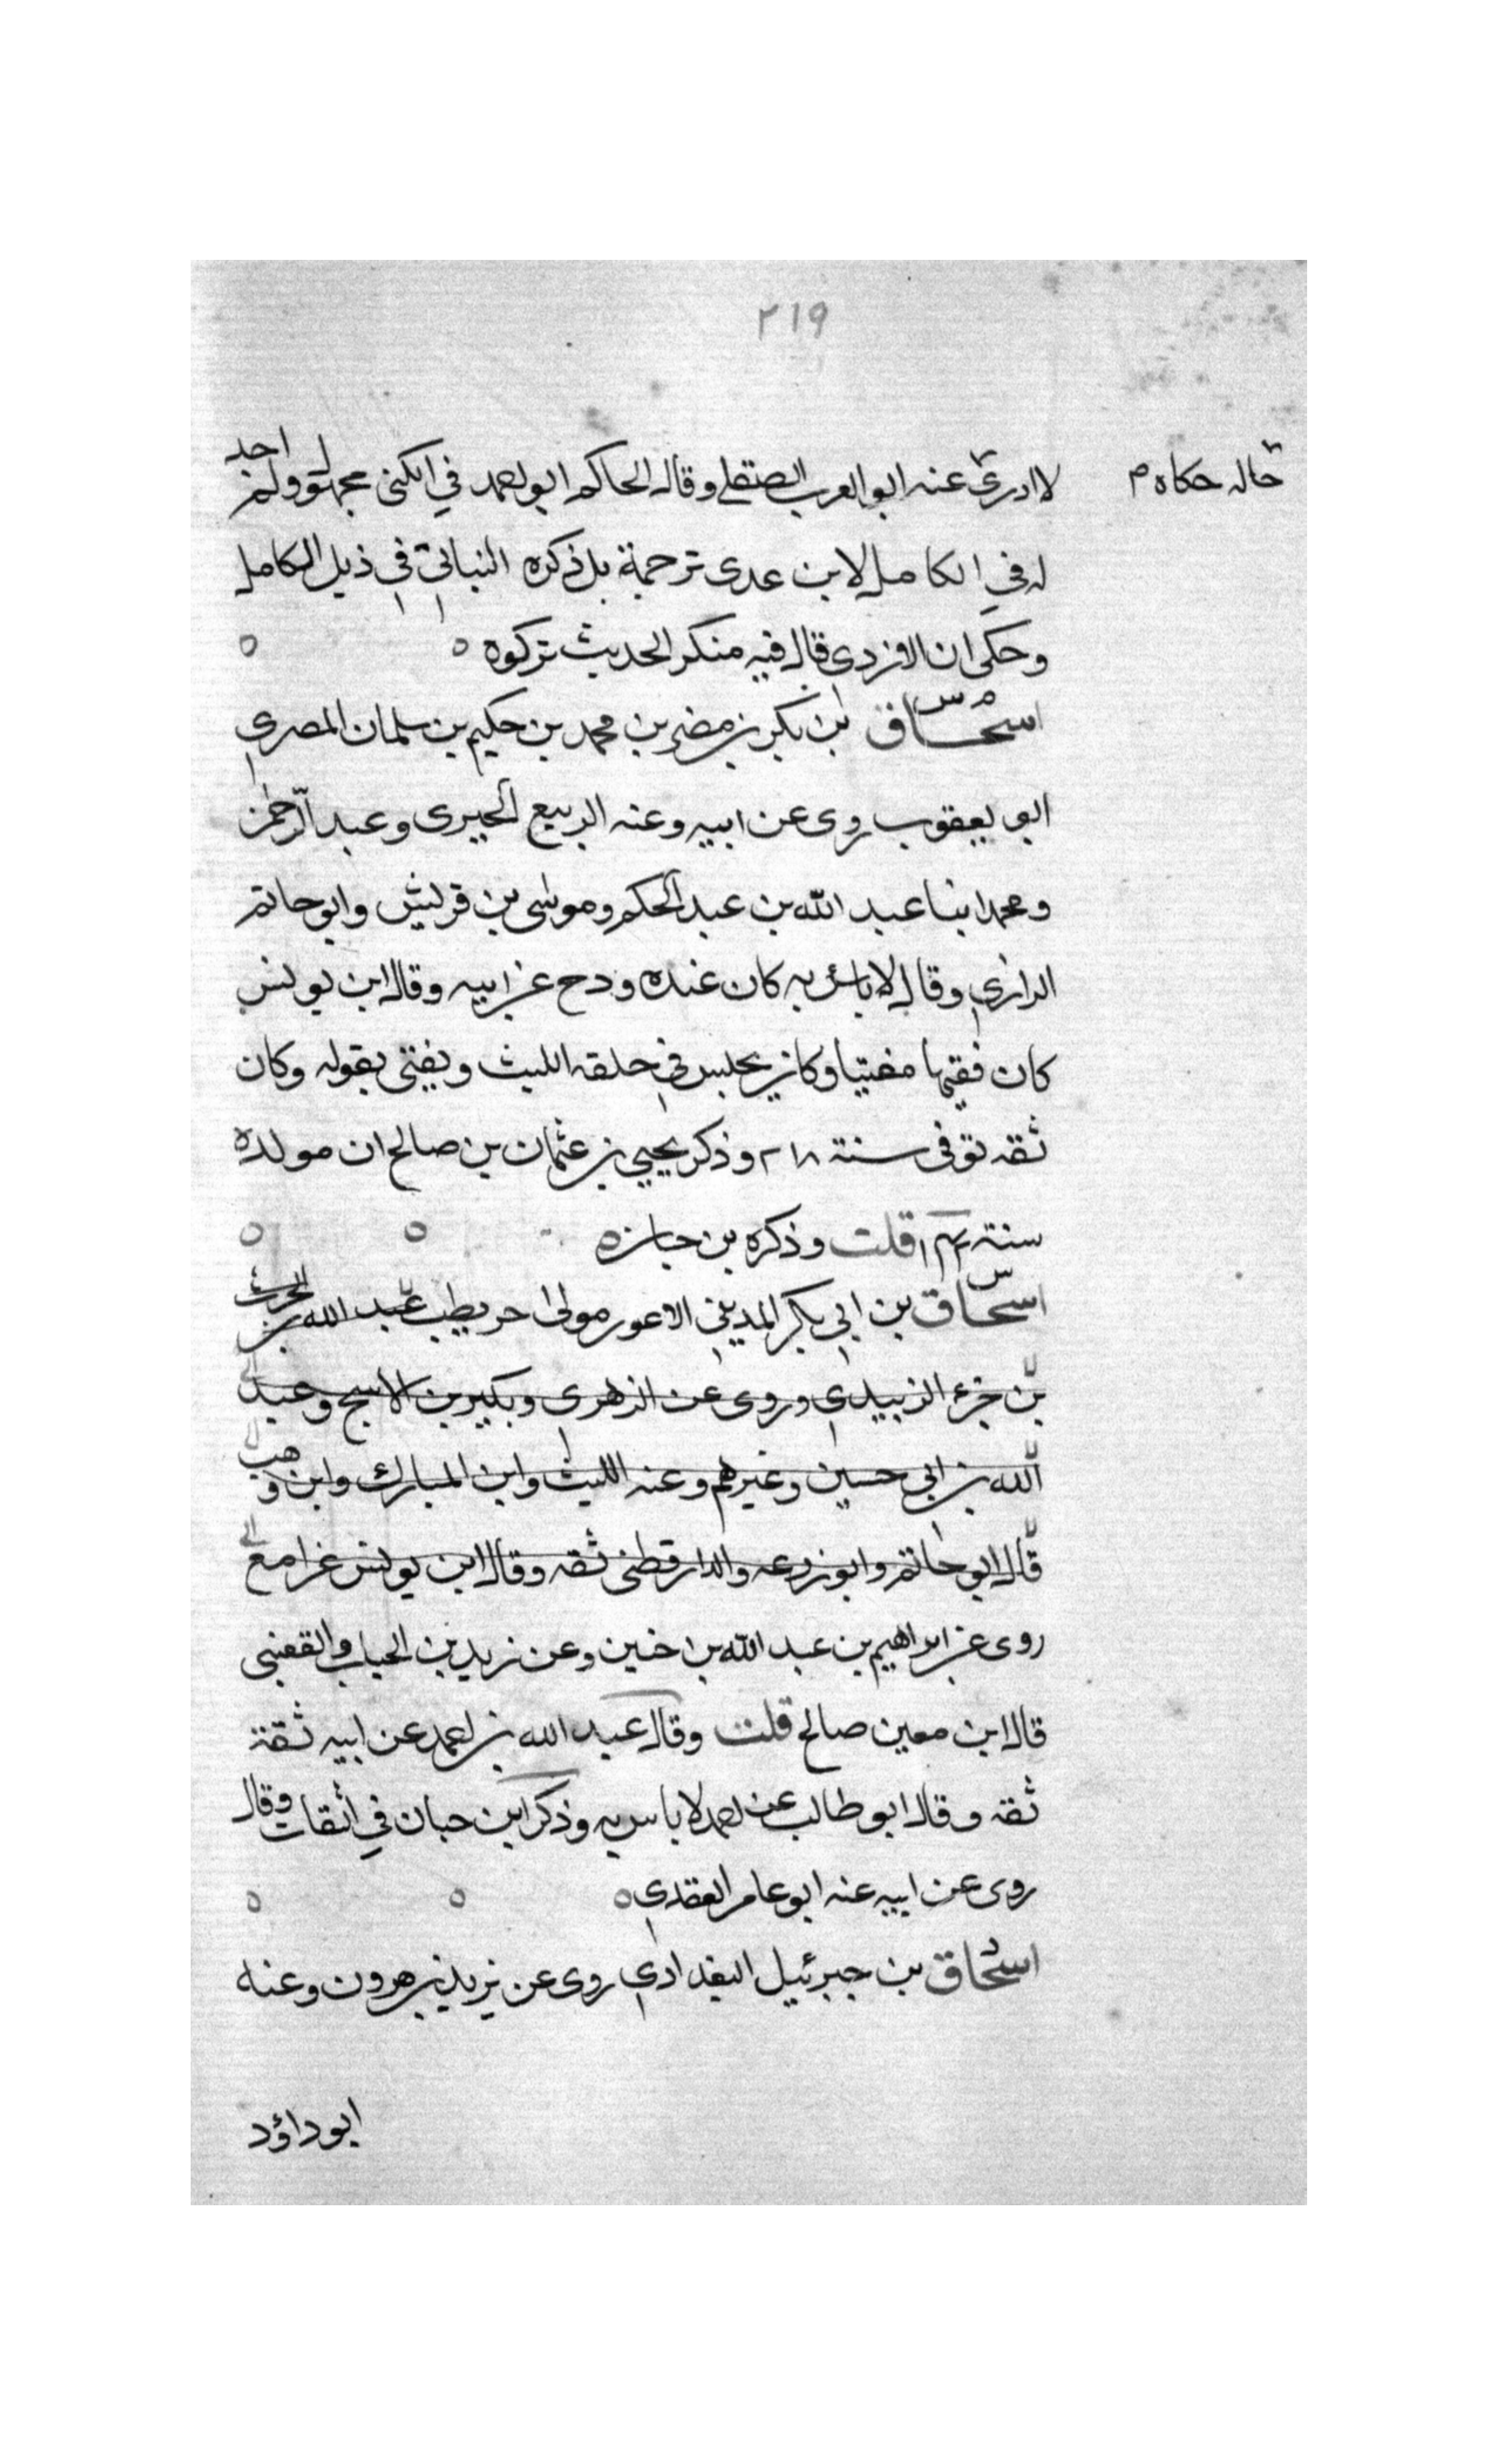 ٢١٩
حاله حكاه م
لا ادرى عنه ابو العرب الصقلي وقال الحاكم ابو احمد في الكنى مجهول ولم اجد
له في الكامل لابن عدى ترجمة بل ذكره النباتي في ذيل الكامل
وحكى ان الازدى قال فيه منكر الحديث تركوه
اسحاق بن بكر بن مضر بن محمد بن حكيم بن سلمان المصري
ابو يعقوب روى عن ابيه وعنه الربيع الجيزى وعبد الرحمن
ومحمد ابنا عبد الله بن عبد الحكم وموسى بن قريش وابو حاتم
الرازي وقال لا باس به كان عنده ودح عن ابيه وقال ابن يونس
كان فقيها مفتيا وكان يجلس في حلقه الليث ويفتى بقوله وكان
ثقه توفى سنة ٢١٨ وذكر يحيى بن عثمان بن صالح ان مولده
سنة قلت وذكره بن
اسحاق بن ابي بكر المديني الاعور مولى حويطب عبد الله بن الحرث
بن جزء الزبيدي وروى عن الزهرى وبكير بن الاشج وعبد
الله بن ابي حسين وغيرهم وعنه الليث وابن المبارك وابن وهب
قال ابو حاتم وابو زرعه والدارقطنى ثقه وقال ابن يونس غزا مع
روى عن ابراهيم بن عبد الله بن حنين وعن زيد بن الحباب والقعنبى
قال ابن معين صالح قلت وقال عبد الله بن احمد عن ابيه ثقة
ثقه وقال ابو طالب عن احمد لا باس به وذكر ابن حبان في الثقات وقال
روى عن ابيه عنه ابو عامر العقدي
اسحاق بن جبرئيل البغدادي روى عن يزيد بن هرون وعنه
ابو داؤد